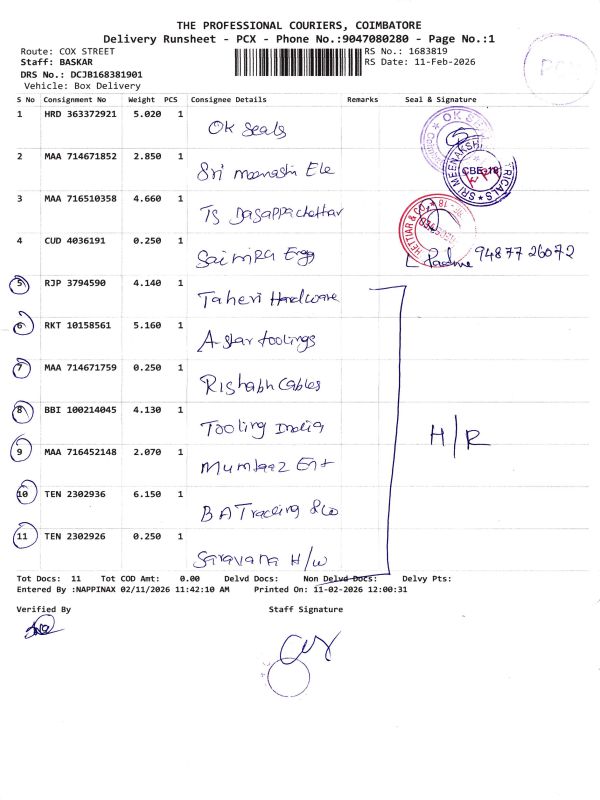 THE PROFESSIONAL COURIERS, COIMBATORE
Delivery Runsheet - PCX - Phone No.:9047080280 - Page No.:1
Route: COX STREET
RS No.: 1683819
Staff: BASKAR
RS Date: 11-Feb-2026
DRS No.: DCJB168381901
Vehicle: Box Delivery
PCX
S No Consignment No Weight PCS Consignee Details Remarks Seal & Signature
1 HRD 363372921 5.020 1 OK Seals
2 MAA 714671852 2.850 1 Sri meenashi Ele
3 MAA 716510358 4.660 1 TS Dasappachettiar
4 CUD 4036191 0.250 1 Saimira Engg 9487726072
5 RJP 3794590 4.140 1 Taheri Hardware
6 RKT 10158561 5.160 1 A-star toolings
7 MAA 714671759 0.250 1 Rishabh Cables
8 BBI 100214045 4.130 1 Tooling India
H/R
9 MAA 716452148 2.070 1 Mumtaaz Ent
10 TEN 2302936 6.150 1 BA Trading & Co
11 TEN 2302926 0.250 1 Saravana H/w
Tot Docs: 11 Tot COD Amt: 0.00 Delvd Docs: Non Delvd Docs: Delvy Pts:
Entered By :NAPPINAX 02/11/2026 11:42:10 AM Printed On: 11-02-2026 12:00:31
Verified By Staff Signature